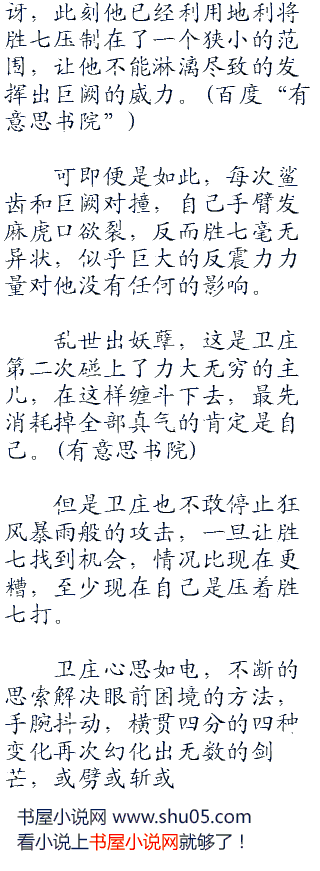 讶，此刻他已经利用地利将
胜七压制在了一个狭小的范
围，让他不能淋漓尽致的发
挥出巨阙的威力。(百度“有
意思书院”)
可即便是如此，每次鲨
齿和巨阙对撞，自己手臂发
麻虎口欲裂，反而胜七毫无
异状，似乎巨大的反震力力
量对他没有任何的影响。
乱世出妖孽，这是卫庄
第二次碰上了力大无穷的主
儿，在这样缠斗下去，最先
消耗掉全部真气的肯定是自
己。(有意思书院)
但是卫庄也不敢停止狂
风暴雨般的攻击，一旦让胜
七找到机会，情况比现在更
糟，至少现在自己是压着胜
七打。
卫庄心思如电，不断的
思索解决眼前困境的方法，
手腕抖动，横贯四分的四种
变化再次幻化出无数的剑
芒，或劈或斩或
书屋小说网 www.shu05.com
看小说上书屋小说网就够了！